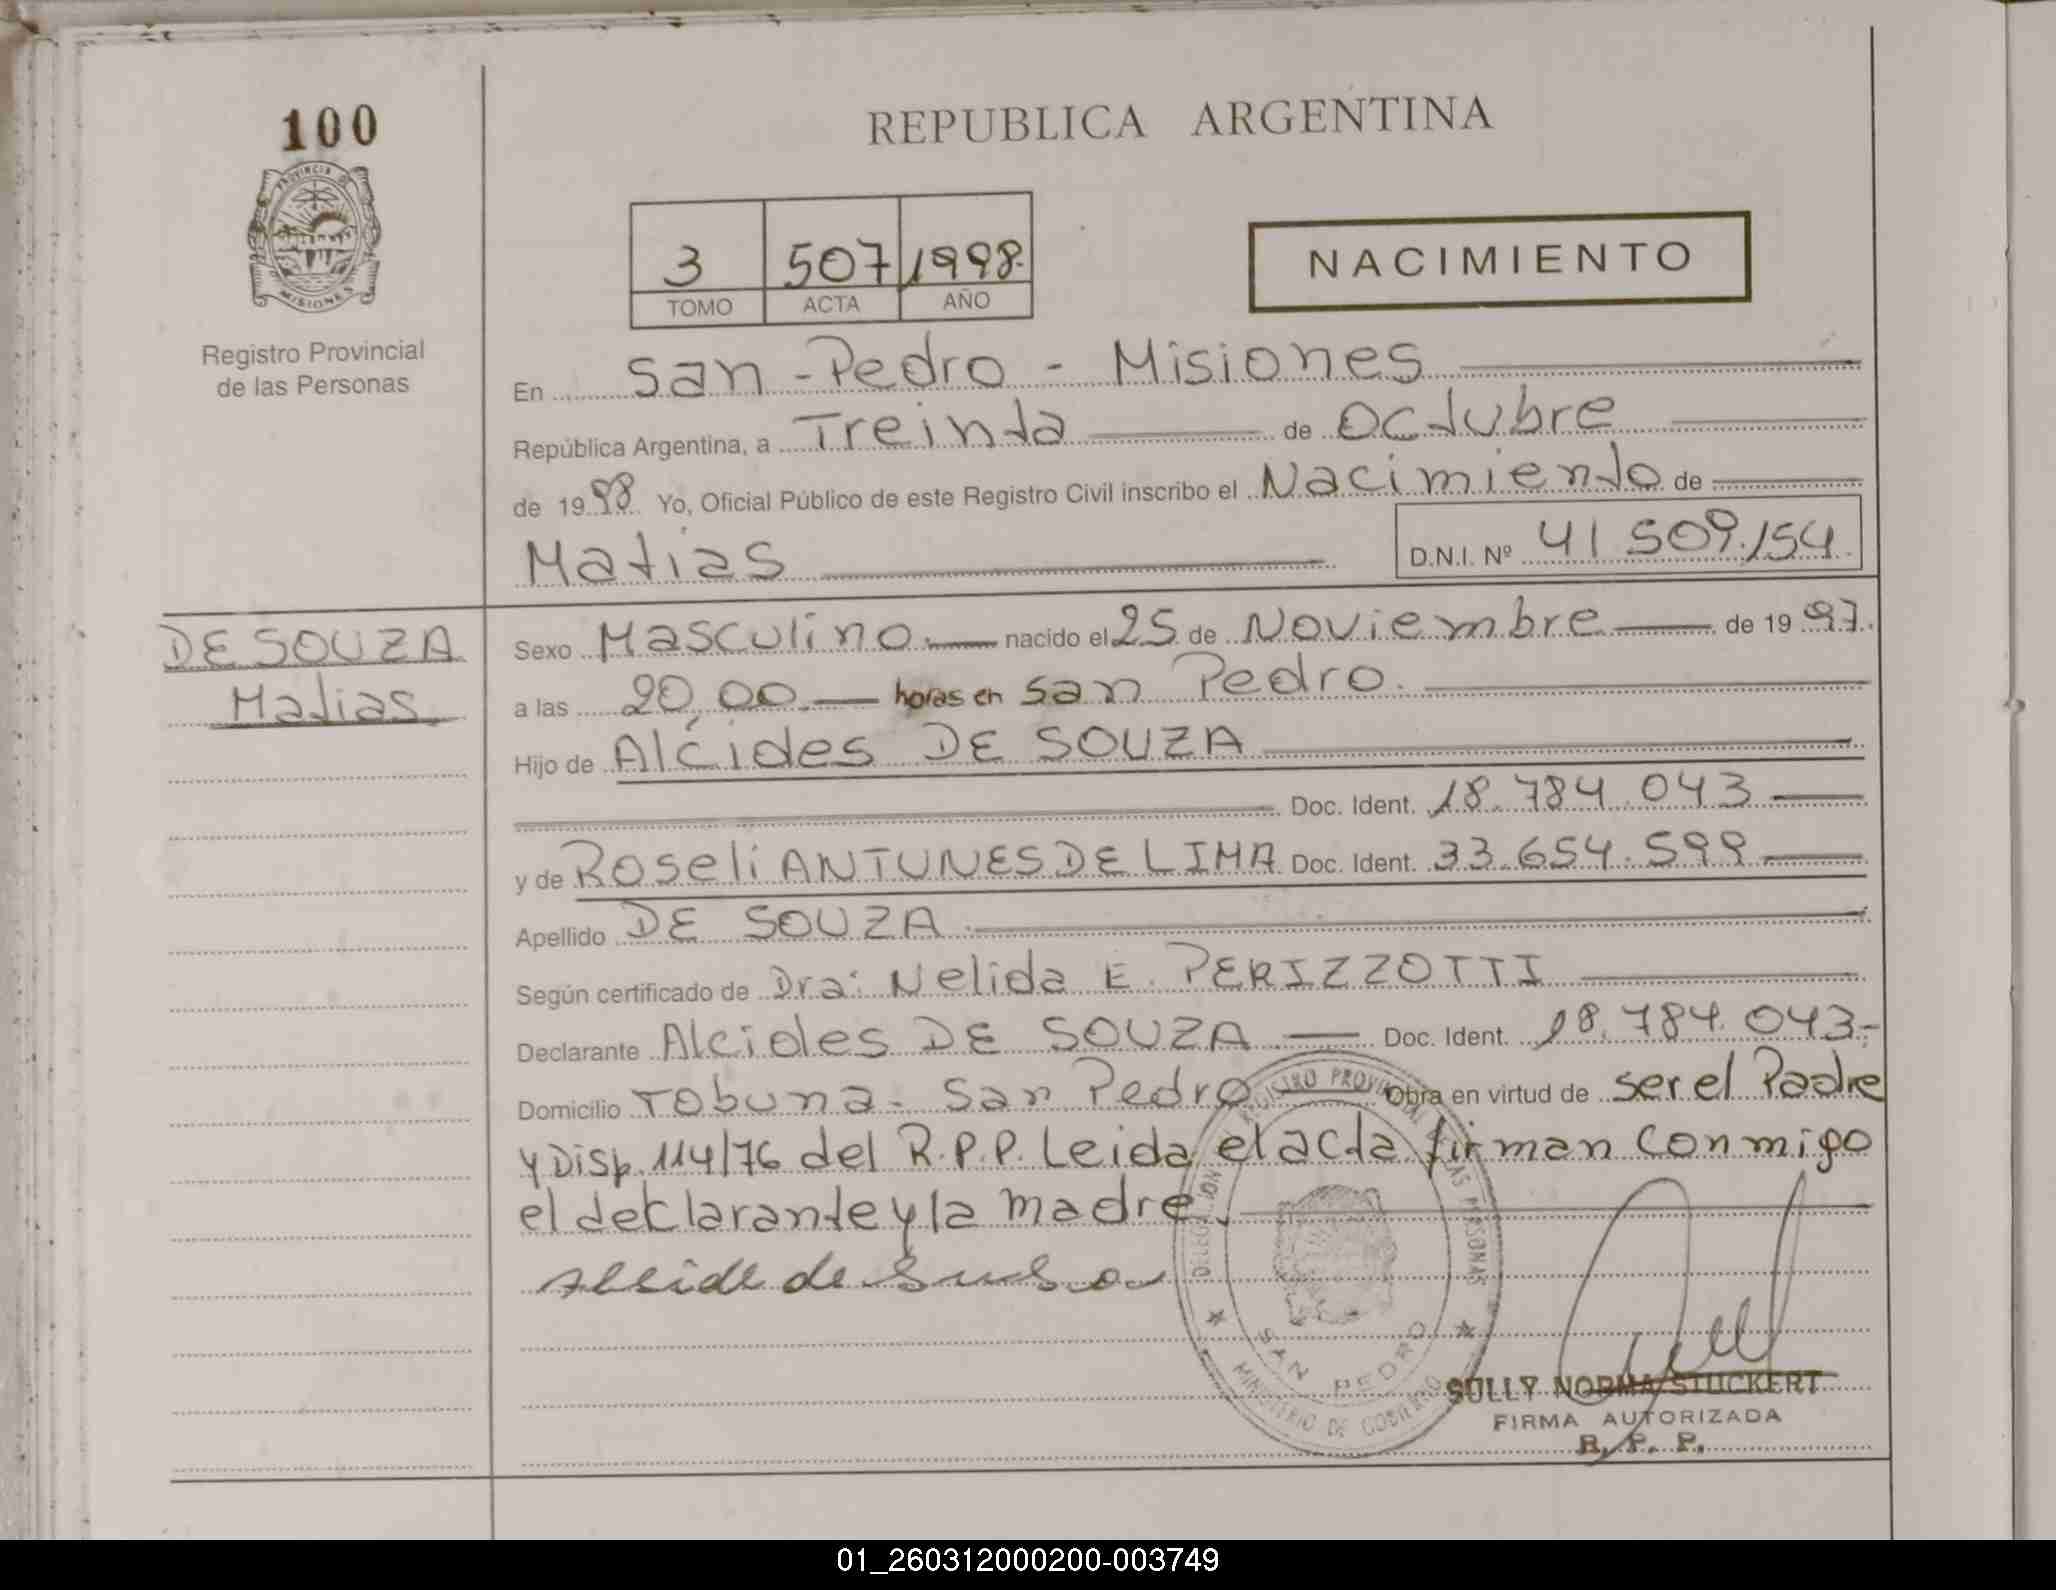 100
PROVINCIA DE
MISIONES
Registro Provincial
de las Personas
REPUBLICA ARGENTINA
3 507 1998.
TOMO ACTA AÑO
NACIMIENTO
En San-Pedro - Misiones
República Argentina, a Treinta de Octubre
de 1998 Yo, Oficial Público de este Registro Civil inscribo el Nacimiento de
Matias D.N.I. Nº 41 509.154
DE SOUZA
Matias
Sexo Masculino. nacido el 25 de Noviembre de 1997.
a las 20,00 horas en San Pedro.
Hijo de Alcides DE SOUZA
Doc. Ident. 18.784.043
y de Roseli ANTUNES DE LIMA Doc. Ident. 33.654.599
Apellido DE SOUZA
Según certificado de Dra: Nelida E. PERIZZOTTI
Declarante Alcides DE SOUZA Doc. Ident. 18.784.043-
Domicilio Tobuna. San Pedro Obra en virtud de ser el Padre
y Disp. 114/76 del R.P.P. Leida el acta firman conmigo
el declarante y la madre.
REGISTRO PROVINCIAL LAS PERSONAS
SAN PEDRO
MINISTERIO DE GOBIERNO
SULLY NORMA STUCKERT
FIRMA AUTORIZADA
R. P. P.
01_260312000200-003749